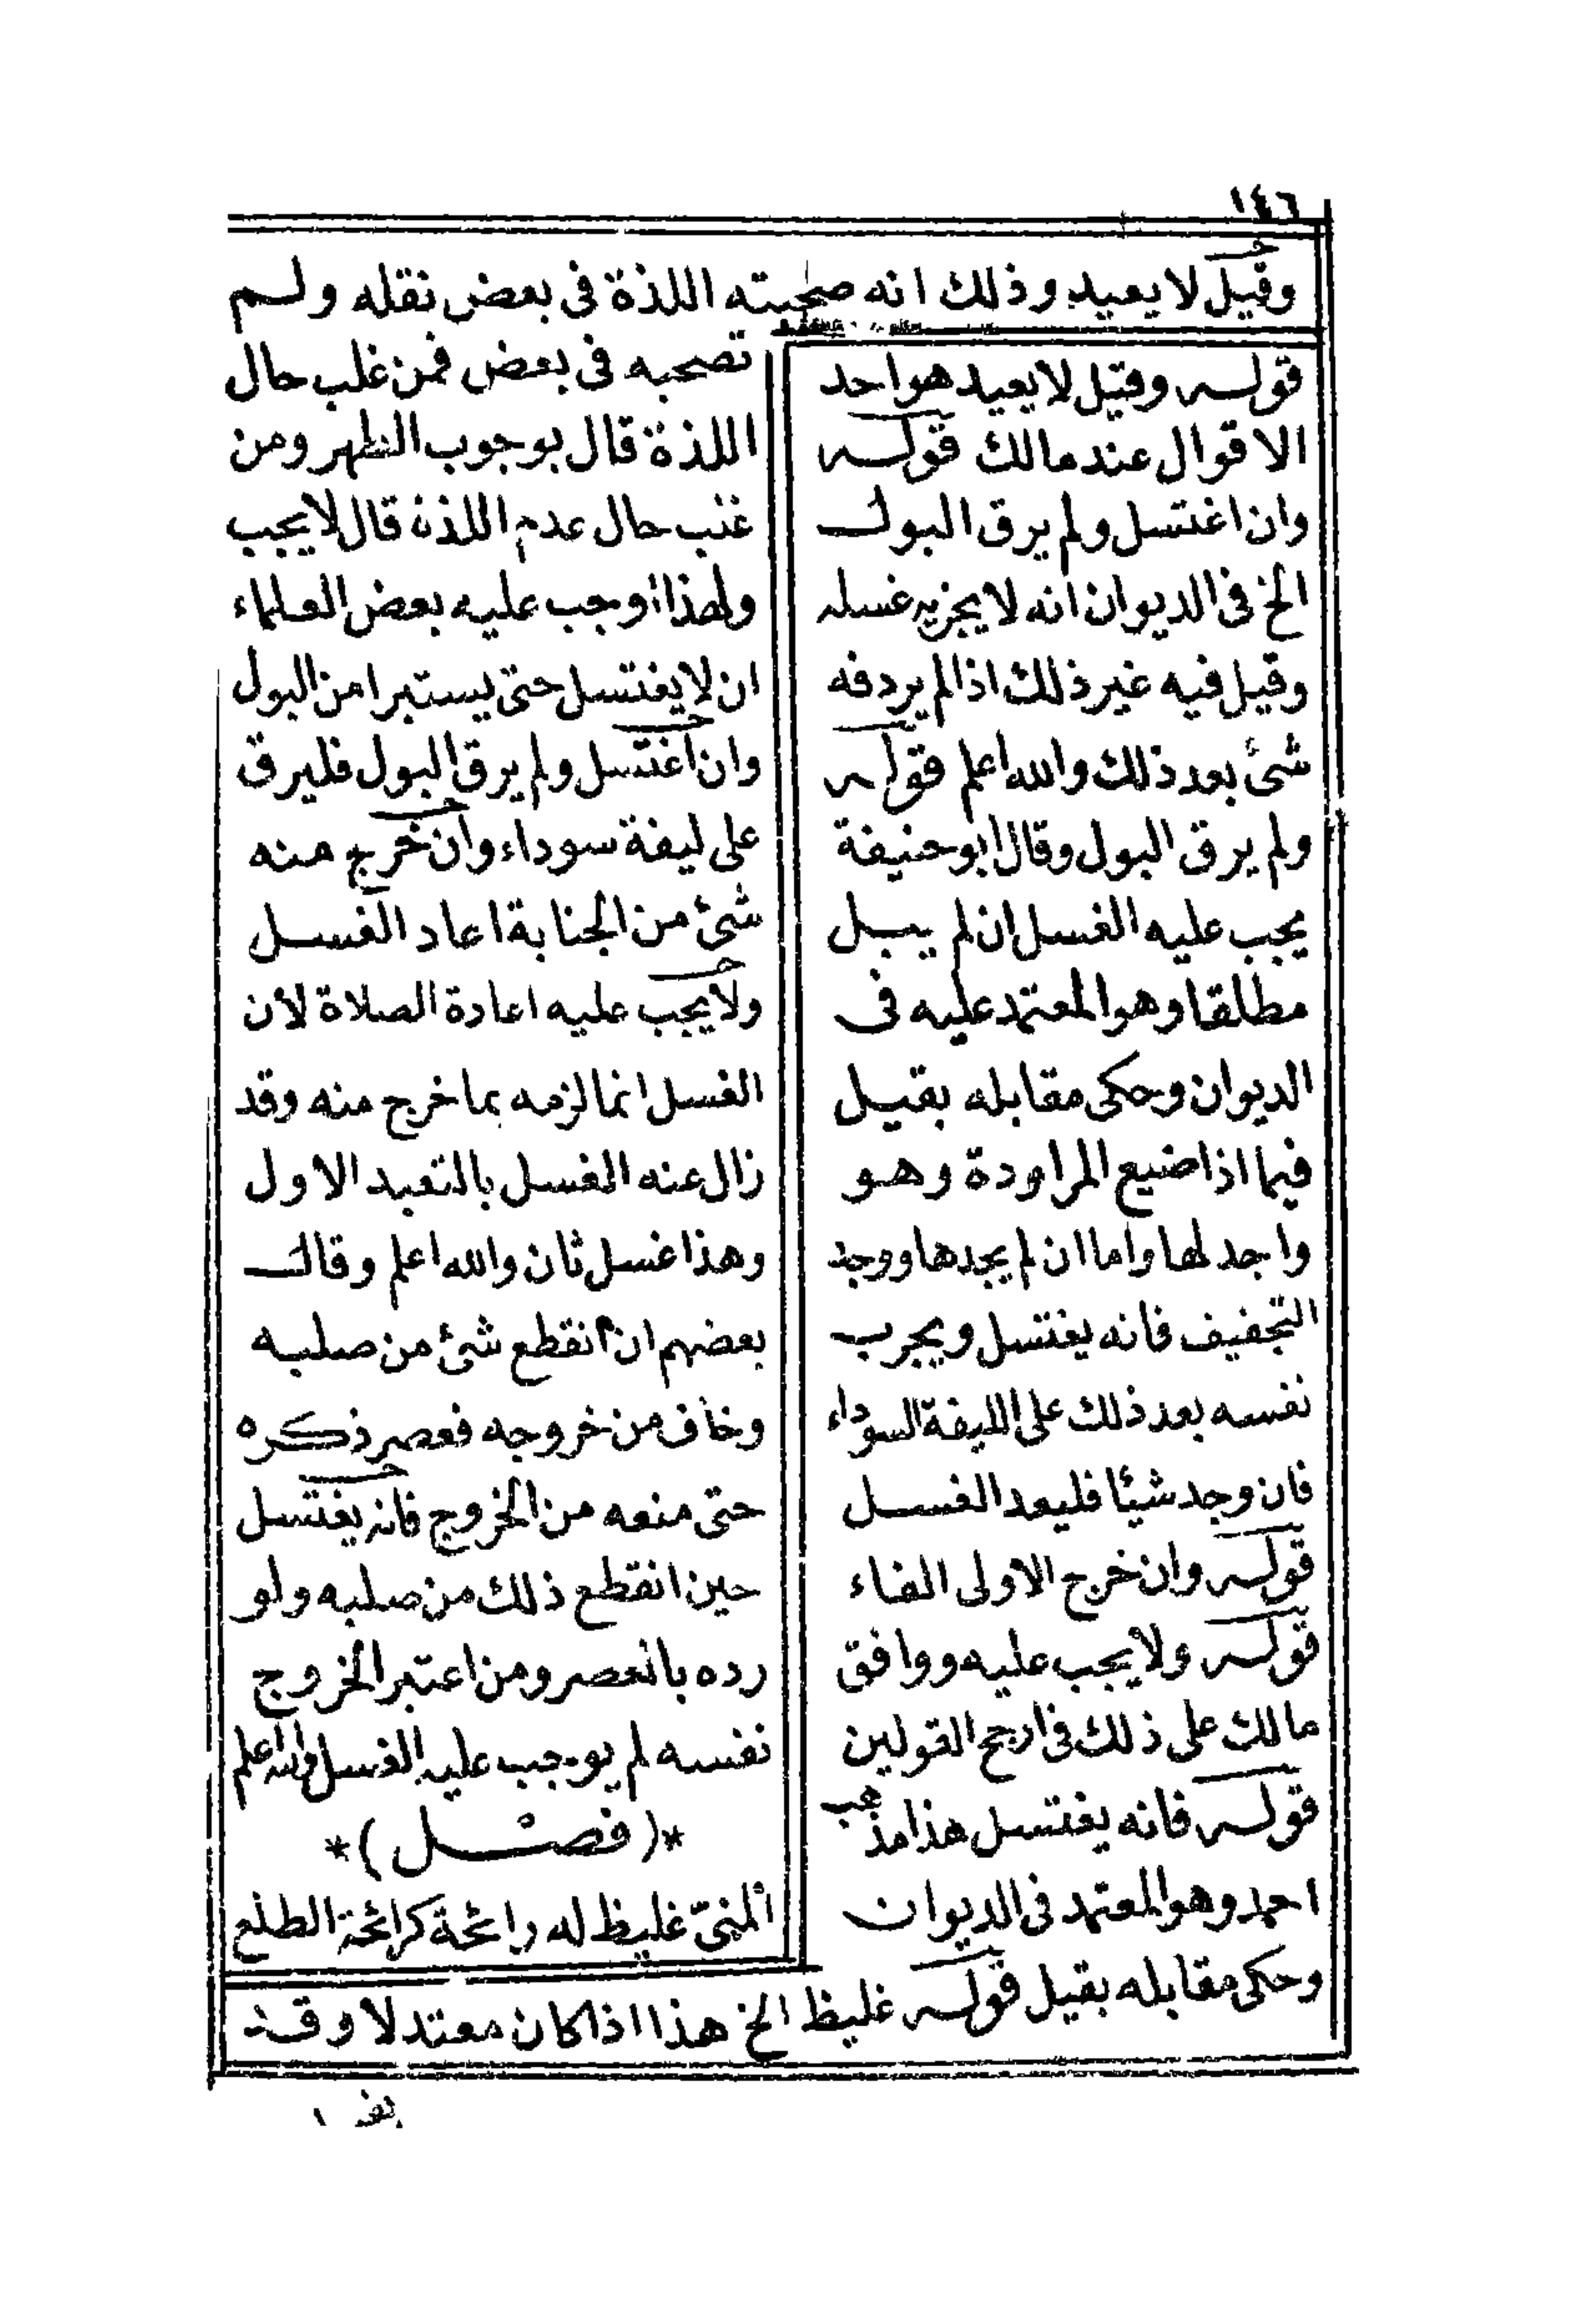 ١٤٦
وقيل لا يعيد وذلك انه صحبته اللذة فى بعض نقله ولم
تصحبه فى بعض فمن غلب حال
اللذة قال بوجوب الطهر ومن
غلب حال عدم اللذة قال لا يجب
ولهذا اوجب عليه بعض العلماء
ان لا يغتسل حتى يستبرا من البول
وان اغتسل ولم يرق البول فليرق
على ليفة سوداء وان خرج منه
شئ من الجنابة اعاد الغسل
ولا يجب عليه اعادة الصلاة لأن
الغسل انما لزمه بما خرج منه وقد
زال عنه الغسل بالتعبد الاول
وهذا غسل ثان والله اعلم وقال
بعضهم ان انقطع شئ من صلبه
وخاف من خروجه فعصر ذكره
حتى منعه من الخروج فانه يغتسل
حين انقطع ذلك من صلبه ولو
رده بالعصر ومن اعتبر الخروج
نفسه لم يوجب عليه الغسل والله اعلم
*(فصل)*
المنىّ غليظ له رائحة كرائحة الطلع
قوله وقيل لا يعيد هو احد
الاقوال عند مالك قوله
وان اغتسل ولم يرق البول
الخ فى الديوان انه لا يجزيه غسله
وقيل فيه غير ذلك اذا لم يردفه
شئ بعد ذلك والله اعلم قوله
ولم يرق البول وقال ابو حنيفة
يجب عليه الغسل ان لم يبل
مطلقا وهو المعتمد عليه فى
الديوان وحكى مقابله بقيل
فيما اذا ضيع المراودة وهو
واجد لها واما ان لم يجدها ووجد
التجفيف فانه يغتسل ويجرب
نفسه بعد ذلك على الليفة السوداء
فان وجد شيئا فليعد الغسل
قوله وان خرج الاولى الفاء
قوله ولا يجب عليه ووافق
مالك على ذلك فى ارجح القولين
قوله فانه يغتسل هذا مذهب
احمد وهو المعتمد فى الديوان
وحكى مقابله بقيل قوله غليظ الخ هذا اذا كان معتدلا وقد